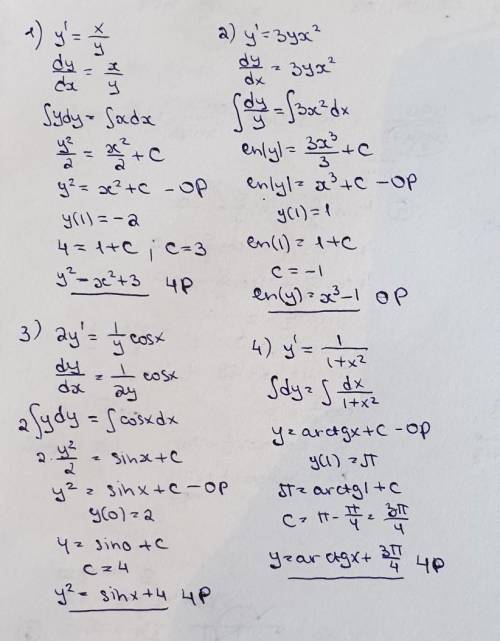 1) y' = x/y
dy/dx = x/y
∫ydy = ∫xdx
y²/2 = x²/2 + C
y² = x² + C - OP
y(1) = -2
4 = 1 + C ; C = 3
y² - x² + 3 ЧР
2) y' = 3yx²
dy/dx = 3yx²
∫dy/y = ∫3x²dx
en|y| = 3x³/3 + C
en|y| = x³ + C - OP
y(1) = 1
en(1) = 1 + C
C = -1
en(y) = x³ - 1 OP
3) 2y' = 1/y cosx
dy/dx = 1/2y cosx
2∫ydy = ∫cosxdx
2·y²/2 = sinx + C
y² = sinx + C - OP
y(0) = 2
4 = sin0 + C
C = 4
y² = sinx + 4 ЧР
4) y' = 1/1+x²
∫dy = ∫dx/1+x²
y = arctgx + C - OP
y(1) = π
π = arctg1 + C
C = π - π/4 = 3π/4
y = arctgx + 3π/4 ЧР